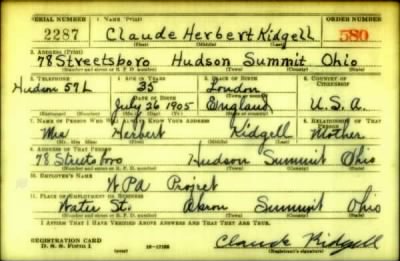 SERIAL NUMBER 1. NAME (Print) ORDER NUMBER
2287 Claude Herbert Kidgell 580
(First) (Middle) (Last)
2. ADDRESS (Print)
78 Streetsboro Hudson Summit Ohio
(Number and street or R. F. D. number) (Town) (County) (State)
3. TELEPHONE 4. AGE IN YEARS 5. PLACE OF BIRTH 6. COUNTRY OF CITIZENSHIP
Hudson 57L 35 London
DATE OF BIRTH
July 26 1905 England U.S.A.
(Mo.) (Day) (Yr.)
7. NAME OF PERSON WHO WILL ALWAYS KNOW YOUR ADDRESS 8. RELATIONSHIP OF THAT PERSON
Mrs Herbert Kidgell Mother
(Mr., Mrs., Miss) (First) (Middle) (Last)
9. ADDRESS OF THAT PERSON
78 Streetsboro Hudson Summit Ohio
(Number and street or R. F. D. number) (Town) (County) (State)
10. EMPLOYER'S NAME
WPA Project
11. PLACE OF EMPLOYMENT OR BUSINESS
Water St. Akron Summit Ohio
(Number and street or R. F. D. number) (Town) (County) (State)
I AFFIRM THAT I HAVE VERIFIED ABOVE ANSWERS AND THAT THEY ARE TRUE.
REGISTRATION CARD
D. S. S. FORM 1 16-17105 Claude Kidgell
(Registrant's signature)